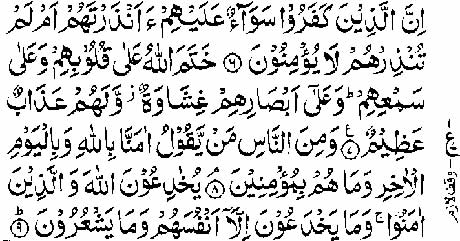 اِنَّ الَّذِيْنَ كَفَرُوْا سَوَآءٌ عَلَيْهِمْ ءَاَنْذَرْتَهُمْ اَمْ لَمْ
تُنْذِرْهُمْ لَا يُؤْمِنُوْنَ ۶ خَتَمَ اللهُ عَلٰى قُلُوْبِهِمْ وَعَلٰى
سَمْعِهِمْ ؕ وَعَلٰٓى اَبْصَارِهِمْ غِشَاوَةٌ ز وَّلَهُمْ عَذَابٌ
عَظِيْمٌ ۷ وَمِنَ النَّاسِ مَنْ يَّقُوْلُ اٰمَنَّا بِاللهِ وَبِالْيَوْمِ
الْاٰخِرِ وَمَا هُمْ بِمُؤْمِنِيْنَ ۘ ۸ يُخٰدِعُوْنَ اللهَ وَالَّذِيْنَ
اٰمَنُوْا ۚ وَمَا يَخْدَعُوْنَ اِلَّآ اَنْفُسَهُمْ وَمَا يَشْعُرُوْنَ ۹
ع
وقف لازم